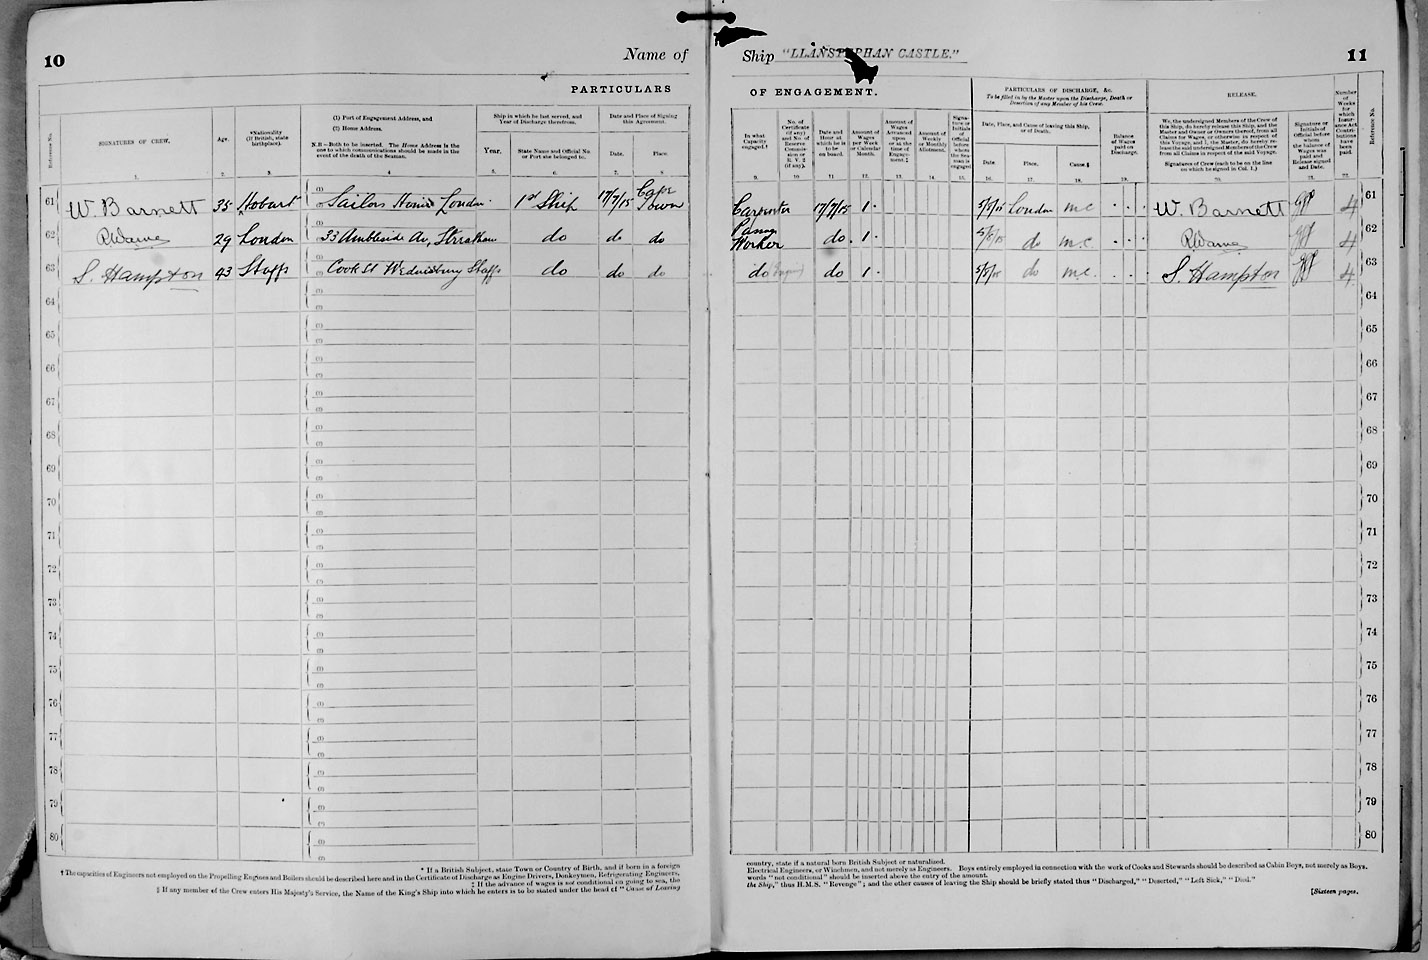 10
Name of
Ship "LLANSTEPHAN CASTLE."
11
PARTICULARS
OF ENGAGEMENT.
Reference No.
SIGNATURES OF CREW.
1.
Age.
2.
*Nationality
(if British, state
birthplace).
3.
(1) Port of Engagement Address, and
(2) Home Address.
N.B—Both to be inserted. The Home Address is the
one to which communications should be made in the
event of the death of the Seaman.
4
Ship in which he last served, and
Year of Discharge therefrom.
Year.
5.
State Name and Official No.
or Port she belonged to.
6.
Date and Place of Signing
this Agreement.
Date.
7.
Place.
8.
In what
Capacity
engaged.†
9.
No. of
Certificate
(if any)
and No. of
Reserve
Commis-
sion or
R. V. 2
(if any).
10.
Date and
Hour at
which he is
to be
on board.
11.
Amount of
Wages
per Week
or Calendar
Month.
12.
Amount of
Wages
Advanced
upon
or at the
time of
Engage-
ment.‡
13.
Amount of
Weekly
or Monthly
Allotment.
14.
Signa-
ture or
Initials
of
Official
before
whom
the Sea-
man is
engaged
15.
PARTICULARS OF DISCHARGE, &c.
To be filled in by the Master upon the Discharge, Death or
Desertion of any Member of his Crew.
Date, Place, and Cause of leaving this Ship,
or of Death.
Date.
16.
Place.
17.
Cause.§
18.
Balance
of Wages
paid on
Discharge.
19.
RELEASE.
We, the undersigned Members of the Crew of
this Ship, do hereby release this Ship, and the
Master and Owner or Owners thereof, from all
Claims for Wages, or otherwise in respect of
this Voyage, and I, the Master, do hereby re-
lease the said undersigned Members of the Crew
from all Claims in respect of the said Voyage.
Signatures of Crew (each to be on the line
on which he signed in Col. 1.)
20.
Signature or
Initials of
Official before
whom
the balance of
Wages was
paid and
Release signed
and Date.
21.
Number
of
Weeks
for
which
Insur-
ance Act
Contri-
butions
have
been
paid.
22.
Reference No.
61 W. Barnett 35 Hobart (1) Sailors Home London. 1st Ship 17/7/15 Cape Town Carpenter 17/7/15 1 · London m.c W. Barnett 4 61
62 29 London 33 Ambleside Av, Streatham do do do Pump Worker do. 1 · do m.c 4 62
63 S. Hampton 43 Staffs Cook St Wednesbury Staffs do do do do do 1 · do m.c. S. Hampton 4 63
64 64
65 65
66 66
67 67
68 68
69 69
70 70
71 71
72 72
73 73
74 74
75 75
76 76
77 77
78 78
79 79
80 80
* If a British Subject, state Town or Country of Birth, and if born in a foreign
country, state if a natural born British Subject or naturalized.
† The capacities of Engineers not employed on the Propelling Engines and Boilers should be described here and in the Certificate of Discharge as Engine Drivers, Donkeymen, Refrigerating Engineers,
Electrical Engineers, or Winchmen, and not merely as Engineers. Boys entirely employed in connection with the work of Cooks and Stewards should be described as Cabin Boys, not merely as Boys.
‡ If the advance of wages is not conditional on going to sea, the
words "not conditional" should be inserted above the entry of the amount.
§ If any member of the Crew enters His Majesty's Service, the Name of the King's Ship into which he enters is to be stated under the head of "Cause of Leaving
the Ship," thus H.M.S. "Revenge"; and the other causes of leaving the Ship should be briefly stated thus "Discharged," "Deserted," "Left Sick," "Died."
[Sixteen pages.